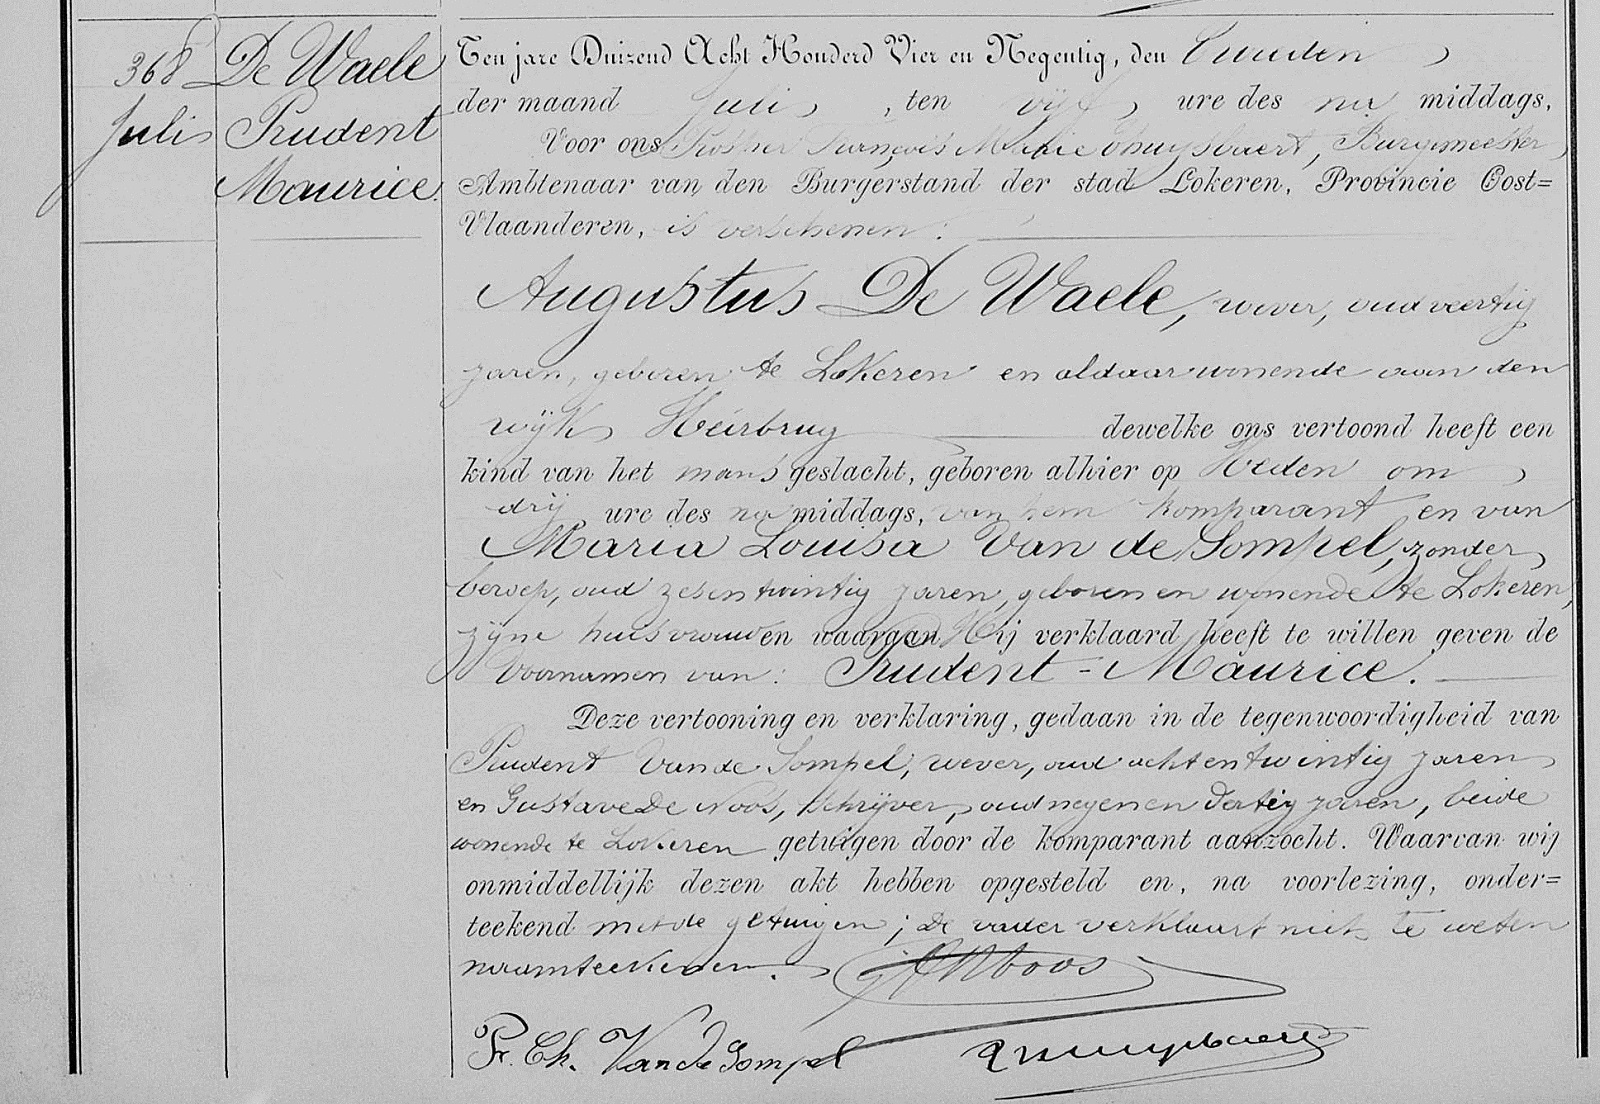 368
Juli
De Waele
Prudent
Maurice.
Ten jare Duizend Acht Honderd Vier en Negentig, den
der maand Juli, ten vijf ure des na middags,
Voor ons Prosper François Marie Thuysbaert, Burgemeester,
Ambtenaar van den Burgerstand der stad Lokeren, Provincie Oost=
Vlaanderen, is verschenen:
Augustus De Waele, wever, oud veertig
jaren, geboren te Lokeren en aldaar wonende aan den
wijk Heirbrug dewelke ons vertoond heeft een
kind van het mans geslacht, geboren alhier op Heden om
drij ure des na middags, van hem komparant en van
Maria Louisa Van de Sompel, zonder
beroep, oud zesentwintig jaren, geboren en wonende te Lokeren,
zijne huisvrouw en waaraan Hij verklaard heeft te willen geven de
Voornamen van: Prudent-Maurice.
Deze vertooning en verklaring, gedaan in de tegenwoordigheid van
Prudent Van de Sompel, wever, oud achtentwintig jaren
en Gustave De Noos, schrijver, oud negenendertig jaren, beide
wonende te Lokeren getuigen door de komparant aanzocht. Waarvan wij
onmiddellijk dezen akt hebben opgesteld en, na voorlezing, onder=
teekend met de getuigen; De vader verklaart niet te weten
naamteekenen.
Pr. Ch. Van de Sompel